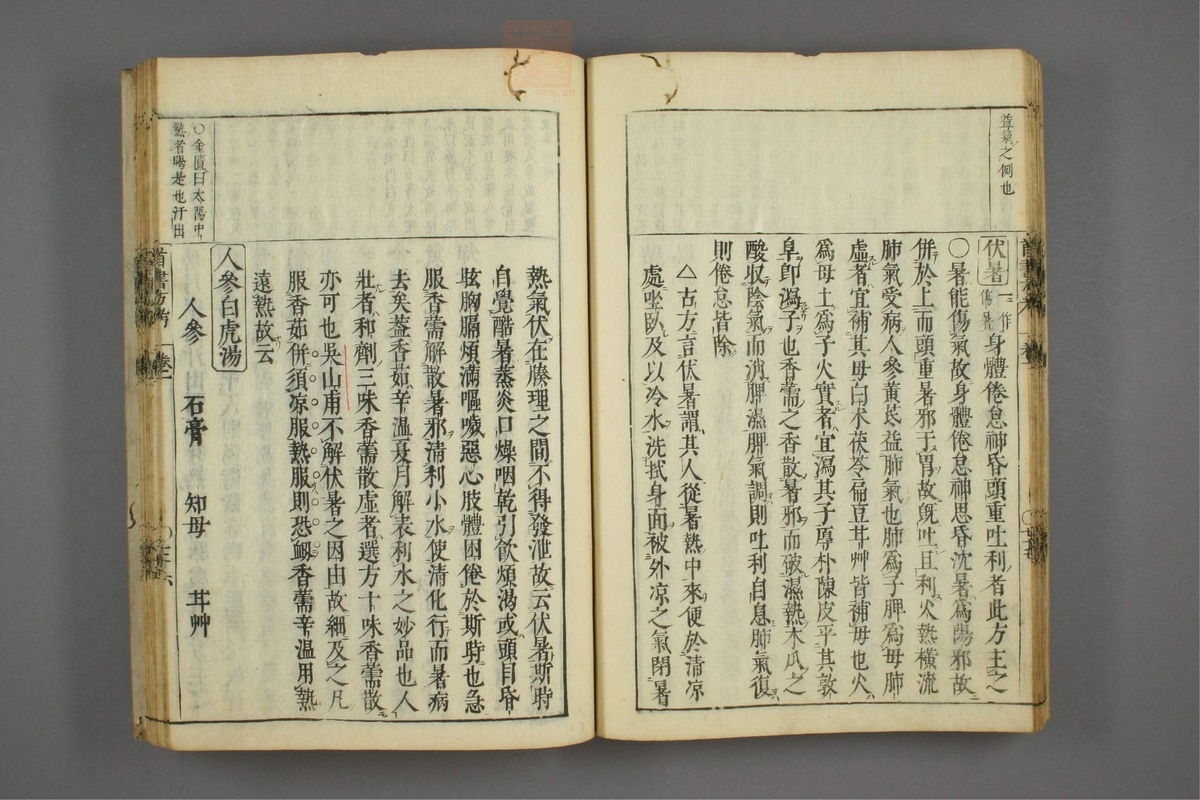 益氣之例也
伏暑一作傷暑身體倦怠神昏頭重吐利者此方主之
〇暑能傷氣故身體倦怠神思昏沈暑爲陽邪故
併於上而頭重暑邪于胃故既吐且利火熱橫流
肺氣受病人參黃芪益肺氣也肺爲子脾爲母肺
虛者宜補其母白朮茯苓扁豆甘艸皆補母也火
爲母土爲子火實者宜瀉其子厚朴陳皮平其敦
阜即瀉子也香薷之香散暑邪而破濕熱木瓜之
酸収陰氣而消脾濕脾氣調則吐利自息肺氣復
則倦怠皆除
△古方言伏暑謂其人從暑熱中來便於清凉
處坐臥及以冷水洗拭身面被外凉之氣閉暑
熱氣伏在藤理之間不得發泄故云伏暑斯時
自覺酷暑蒸炎口燥咽乾引飲煩渴或頭目昏
眩胸膈煩滿嘔噦惡心肢體困倦於斯時也急
服香薷解散暑邪清利小水使清化行而暑病
去矣葢香茹辛溫夏月解表利水之妙品也人
壯者和劑三味香薷散虛者選方十味香薷散
亦可也吳山甫不解伏暑之因由故細及之凡
服香茹併須凉服熱服則恐衂香薷辛溫用熱
遠熱故云
〇金匱曰太陽中
熱者暍是也汗出
人參白虎湯
人參 石膏 知母 甘艸
首書方考 卷一